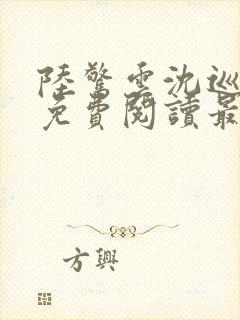 陸驚雲沈巡
免費閱讀最
方興